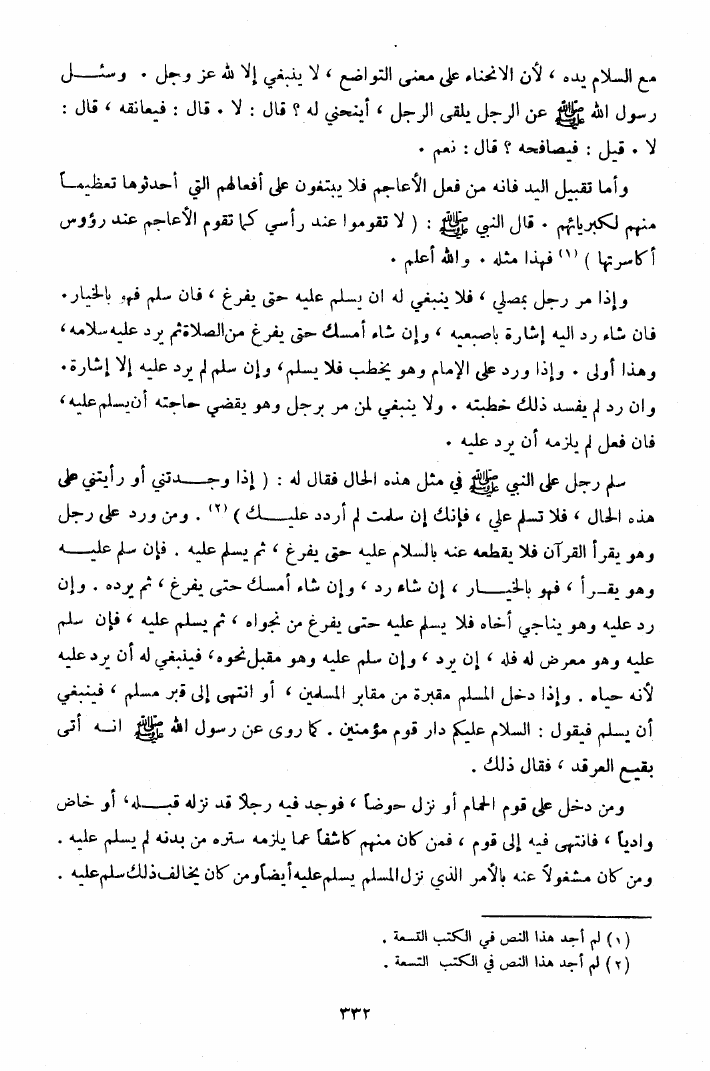 مع السلام يده ، لأن الانحناء على معنى التواضع ، لا ينبغي إلا لله عز وجل . وسئــل
رسول الله ﷺ عن الرجل يلقى الرجل ، أينحني له ؟ قال : لا . قال : فيعانقه ، قال :
لا . قيل : فيصافحه ؟ قال : نعم .
وأما تقبيل اليد فانه من فعل الأعاجم فلا يبتغون على أفعالهم التي أحدثوها تعظيمـاً
منهم لكبريائهم . قال النبي ﷺ : ( لا تقوموا عند رأسي كما تقوم الأعاجم عند رؤوس
أكاسرتها ) (١) فهذا مثله . والله أعلم .
وإذا مر رجل بمصلي ، فلا ينبغي له ان يسلم عليه حتى يفرغ ، فان سلم فهو بالخيار.
فان شاء رد اليه إشارة باصبعيه ، وإن شاء أمسك حتى يفرغ من الصلاة ثم يرد عليه سلامه،
وهذا أولى . وإذا ورد على الإمام وهو يخطب فلا يسلم، وإن سلم لم يرد عليه إلا إشارة.
وان رد لم يفسد ذلك خطبته . ولا ينبغي لمن مر برجل وهو يقضي حاجته أن يسلم عليه،
فان فعل لم يلزمه أن يرد عليه .
سلم رجل على النبي ﷺ في مثل هذه الحال فقال له : ( إذا وجــدتني أو رأيتني على
هذه الحال ، فلا تسلم علي ، فإنك إن سلمت لم أردد عليــك ) (٢) . ومن ورد على رجل
وهو يقرأ القرآن فلا يقطعه عنه بالسلام عليه حتى يفرغ ، ثم يسلم عليه . فإن سلم عليــه
وهو يقـرأ ، فهو بالخيــار ، إن شاء رد ، وإن شاء أمسك حتى يفرغ ، ثم يرده . وإن
رد عليه وهو يناجي أخاه فلا يسلم عليه حتى يفرغ من نجواه ، ثم يسلم عليه ، فإن سلم
عليه وهو معرض له فله ، إن يرد ، وإن سلم عليه وهو مقبل نحوه، فينبغي له أن يرد عليه
لأنه حياه . وإذا دخل المسلم مقبرة من مقابر المسلمين ، أو انتهى إلى قبر مسلم ، فينبغي
أن يسلم فيقول : السلام عليكم دار قوم مؤمنين . كما روى عن رسول الله ﷺ انــه أتى
بقيع العرقد ، فقال ذلك .
ومن دخل على قوم الحمام أو نزل حوضاً ، فوجد فيه رجلاً قد نزله قبــله، أو خاض
وادياً ، فانتهى فيه إلى قوم ، فمن كان منهم كاشفاً عما يلزمه ستره من بدنه لم يسلم عليه .
ومن كان مشغولاً عنه بالأمر الذي نزل المسلم يسلم عليه أيضاً ومن كان يخالف ذلك سلم عليه .
(١) لم أجد هذا النص في الكتب التسعة .
(٢) لم أجد هذا النص في الكتب التسعة .
٣٣٢